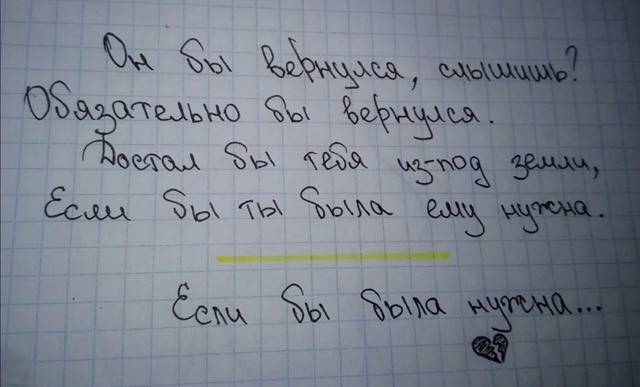 Он бы вернулся, слышишь?
Обязательно бы вернулся.
Достал бы тебя из-под земли,
Если бы ты была ему нужна.
Если бы была нужна...